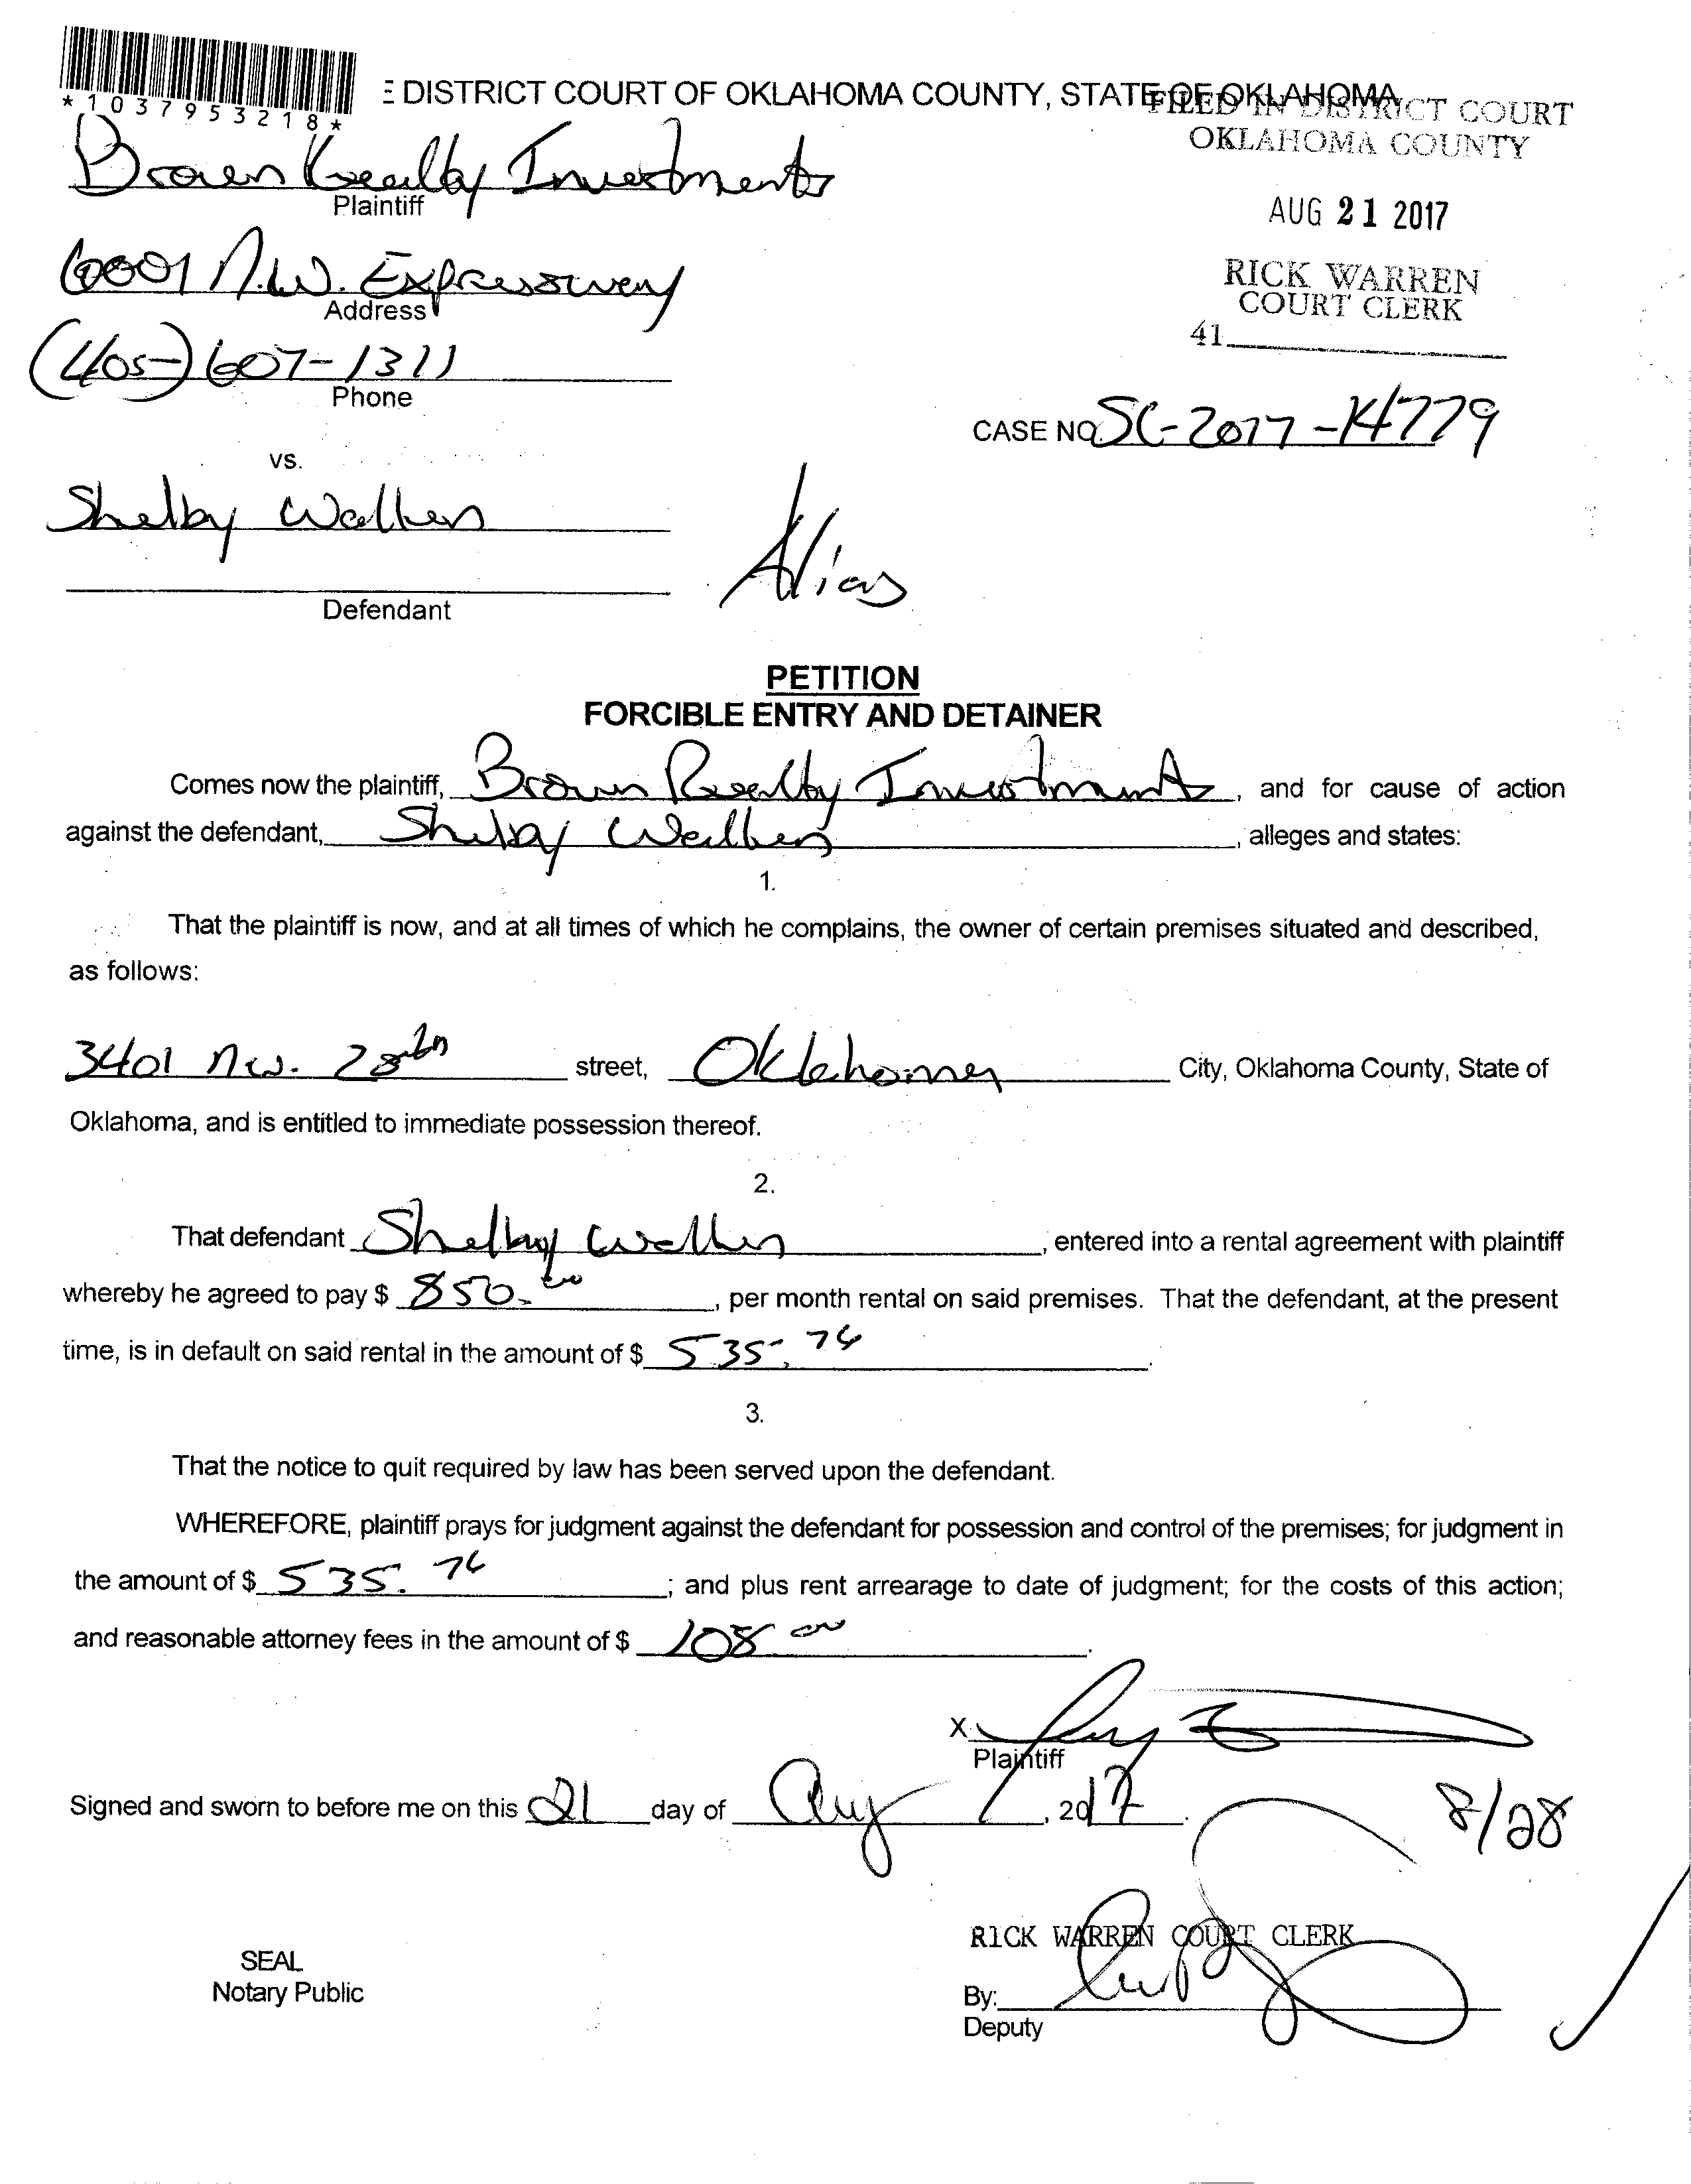 *1037953218*
E DISTRICT COURT OF OKLAHOMA COUNTY, STATE OF OKLAHOMA
FILED IN DISTRICT COURT
OKLAHOMA COUNTY
AUG 21 2017
RICK WARREN
COURT CLERK
41
Brown Realty Investments
Plaintiff
6001 N.W. Expressway
Address
(405) 607-1311
Phone
CASE NO. SC-2017-14779
vs.
Shelby Walker
Alias
Defendant
PETITION
FORCIBLE ENTRY AND DETAINER
Comes now the plaintiff, Brown Realty Investments, and for cause of action
against the defendant, Shelby Walker, alleges and states:
1.
That the plaintiff is now, and at all times of which he complains, the owner of certain premises situated and described,
as follows:
3401 N.W. 28th street, Oklahoma City, Oklahoma County, State of
Oklahoma, and is entitled to immediate possession thereof.
2.
That defendant Shelby Walker, entered into a rental agreement with plaintiff
whereby he agreed to pay $ 850.00, per month rental on said premises. That the defendant, at the present
time, is in default on said rental in the amount of $ 535.76.
3.
That the notice to quit required by law has been served upon the defendant.
WHEREFORE, plaintiff prays for judgment against the defendant for possession and control of the premises; for judgment in
the amount of $ 535.76; and plus rent arrearage to date of judgment; for the costs of this action;
and reasonable attorney fees in the amount of $ 108.00.
X
Plaintiff
Signed and sworn to before me on this 21 day of Aug, 2017.
8/28
RICK WARREN COURT CLERK
SEAL
Notary Public
By:
Deputy